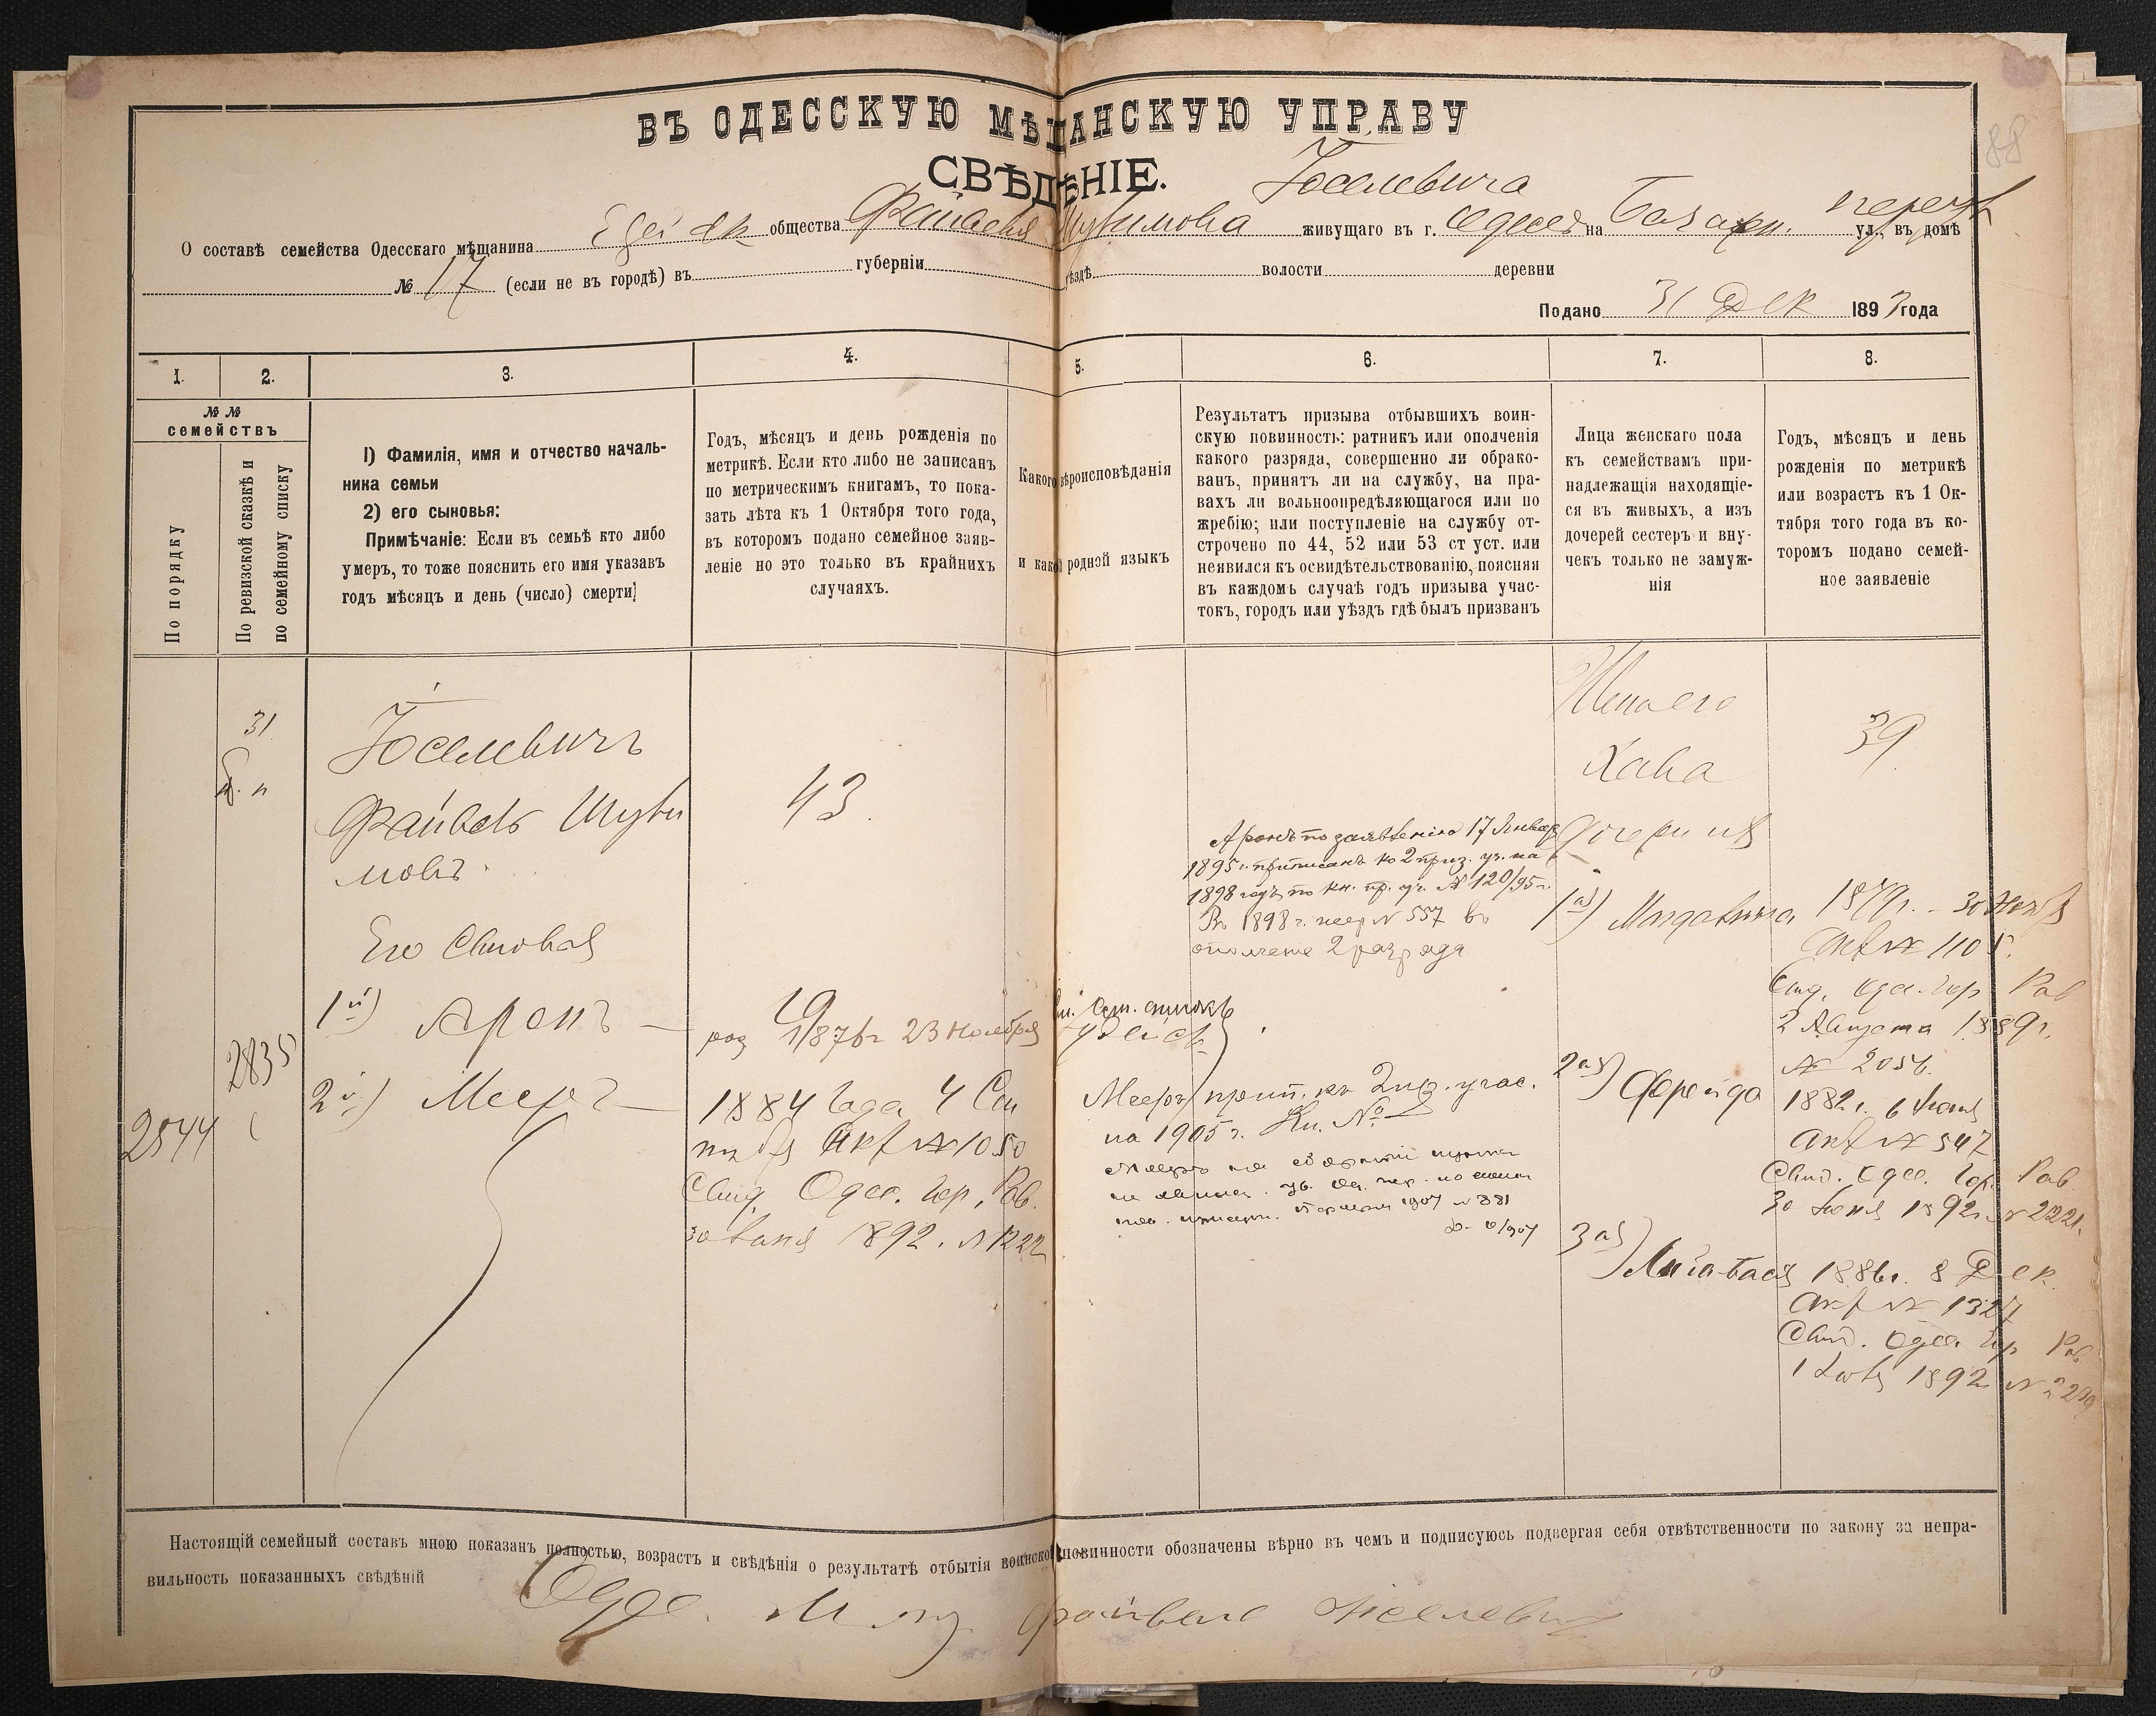 88
ВЪ ОДЕССКУЮ МѢЩАНСКУЮ УПРАВУ
СВѢДѢНІЕ.
Іоселевича
О составѣ семейства Одесскаго мѣщанина общества Файвеля Шулимова живущаго въ г. Одессѣ на Базарн. ул., въ домѣ
№ 17 (если не въ городѣ) въ губерніи уѣздѣ волости деревни
Подано 31 Дек 1893 года
1. 2. 3. 4. 5. 6. 7. 8.
№ №
семействъ
По порядку
По ревизской сказкѣ и
по семейному списку
1) Фамилія, имя и отчество началь-
ника семьи
2) его сыновья:
Примѣчаніе: Если въ семьѣ кто либо
умеръ, то тоже пояснить его имя указавъ
годъ мѣсяцъ и день (число) смерти)
Годъ, мѣсяцъ и день рожденія по
метрикѣ. Если кто либо не записанъ
по метрическимъ книгамъ, то пока-
зать лѣта къ 1 Октября того года,
въ которомъ подано семейное заяв-
леніе но это только въ крайнихъ
случаяхъ.
Какого вѣроисповѣданія
и какой родной языкъ
Результатъ призыва отбывшихъ воин-
скую повинность: ратникъ или ополченія
какого разряда, совершенно ли обрако-
ванъ, принятъ ли на службу, на пра-
вахъ ли вольноопредѣляющагося или по
жребію; или поступленіе на службу от-
строчено по 44, 52 или 53 ст уст. или
неявился къ освидѣтельствованію, поясняя
въ каждомъ случаѣ годъ призыва учас-
токъ, городъ или уѣздъ гдѣ былъ призванъ
Лица женскаго пола
къ семействамъ при-
надлежащія находящіе-
ся въ живыхъ, а изъ
дочерей сестеръ и вну-
чекъ только не замуж-
нія
Годъ, мѣсяцъ и день
рожденія по метрикѣ
или возрастъ къ 1 Ок-
тября того года въ ко-
торомъ подано семей-
ное заявленіе
31
2835
2844
Іоселевичъ
Файвель Шули
мовъ
Его Сыновья
1й) Аронъ
2й) Мееръ
43
19
род 1876г 23 Ноября
1884 Года 4 Сен
тября Акт № 1050
Свид. Одес. Гор. Рав.
30 Іюня 1892. №
Аронъ по заявленію 17 Январ
1895 г. приписанъ ко 2 приз. уч. на
1898 годъ по кн. пр. уч. № 120/95 г.
Въ 1898 г. жер № 557 въ
ополчение 2 разряда
Мееръ прип. къ 2 пр. учас.
на 1905 г. Кн. №
1907 № 881
Жена его
Хава
39
Дочери их
1ая)
1879г. - 30 Нояб
акт № 1105.
Свид. Одес. Гор. Рав
2 Августа 1889г.
№ 2054.
2ая) Фрейда
1882г. 6 Іюня
акт № 547
Свид. Одес. Гор. Рав.
30 Іюня 1892г. № 2221.
3ая)
1886г. 8 Дек.
акт № 1327
Свид. Одес. Гор Рав
1892
Настоящій семейный составъ мною показанъ полностью, возрастъ и свѣдѣнія о результатѣ отбытія воинской повинности обозначены вѣрно въ чемъ и подписуюсь подвергая себя отвѣтственности по закону за непра-
вильность показанныхъ свѣдѣній
Файвель Іоселевич